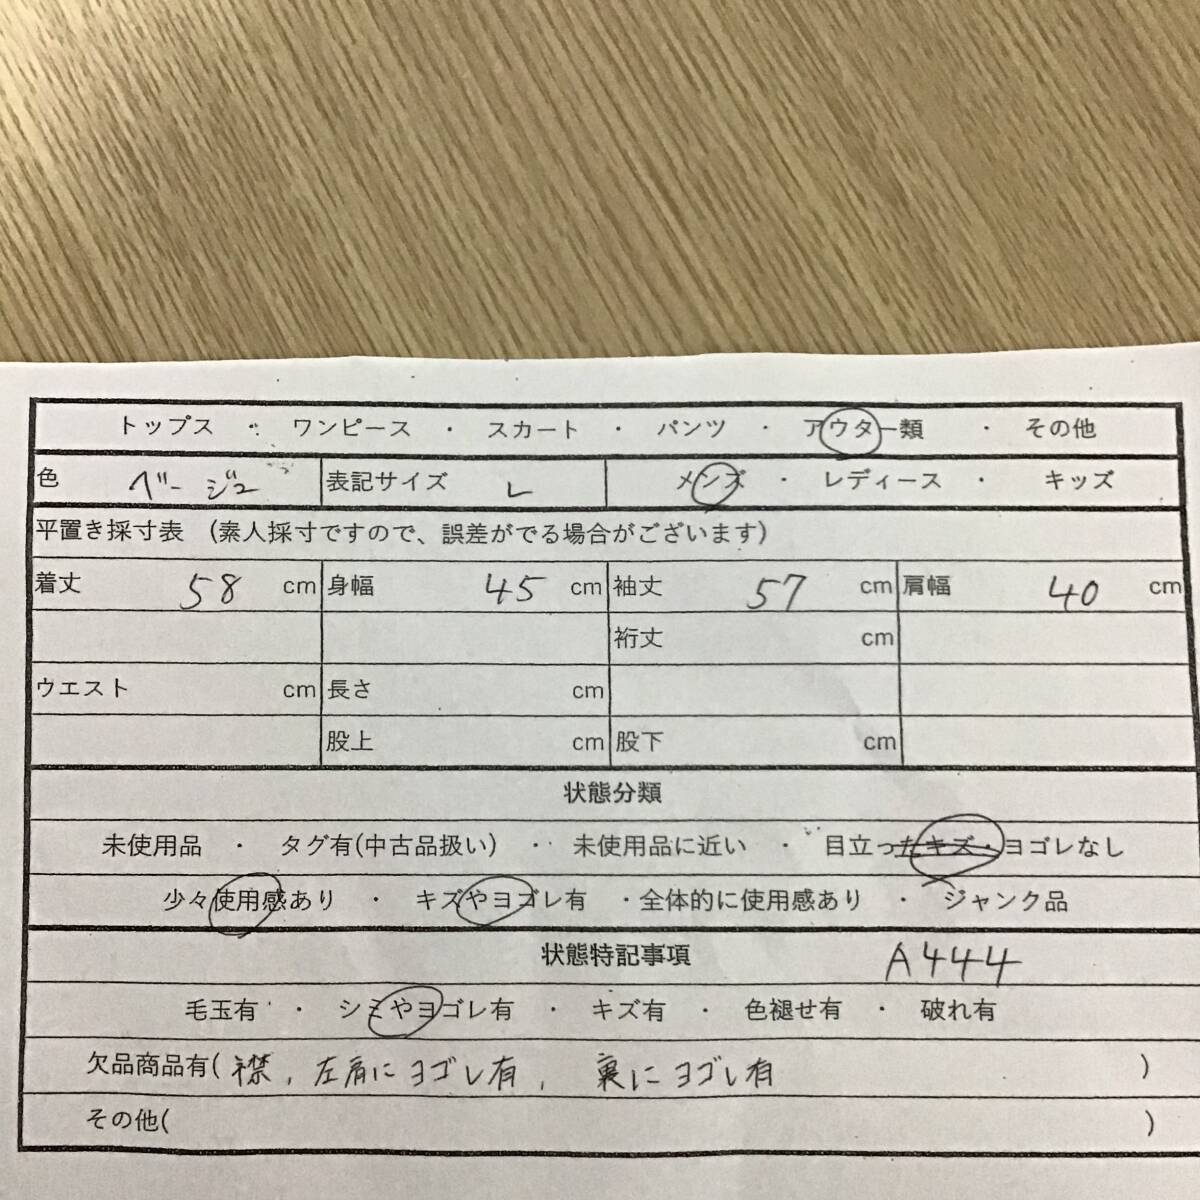 トップス ・ ワンピース ・ スカート ・ パンツ ・ アウター類 ・ その他
色 ベージュ 表記サイズ L メンズ ・ レディース ・ キッズ
平置き採寸表 (素人採寸ですので、誤差がでる場合がございます)
着丈 58 cm 身幅 45 cm 袖丈 57 cm 肩幅 40 cm
裄丈 cm
ウエスト cm 長さ cm
股上 cm 股下 cm
状態分類
未使用品 ・ タグ有(中古品扱い) ・ 未使用品に近い ・ 目立ったキズ・ヨゴレなし
少々使用感あり ・ キズやヨゴレ有 ・全体的に使用感あり ・ ジャンク品
状態特記事項 A444
毛玉有 ・ シミやヨゴレ有 ・ キズ有 ・ 色褪せ有 ・ 破れ有
欠品商品有( 襟, 左肩にヨゴレ有, 裏にヨゴレ有 )
その他( )